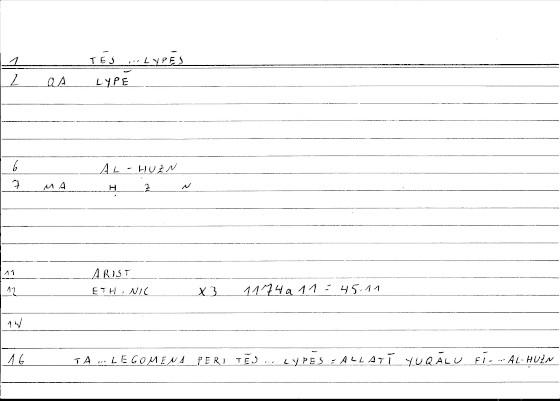 1 TĒS ... LYPĒS
2 QA LYPĒ
6 AL-ḤUZN
7 MA Ḥ Z N
11 ARIST
12 ETH.NIC X3 1174a11 = 45.11
14
16 TA ... LEGOMENA PERI TĒS ... LYPĒS = ALLATĪ YUQĀLU FĪ- ... AL-ḤUZN